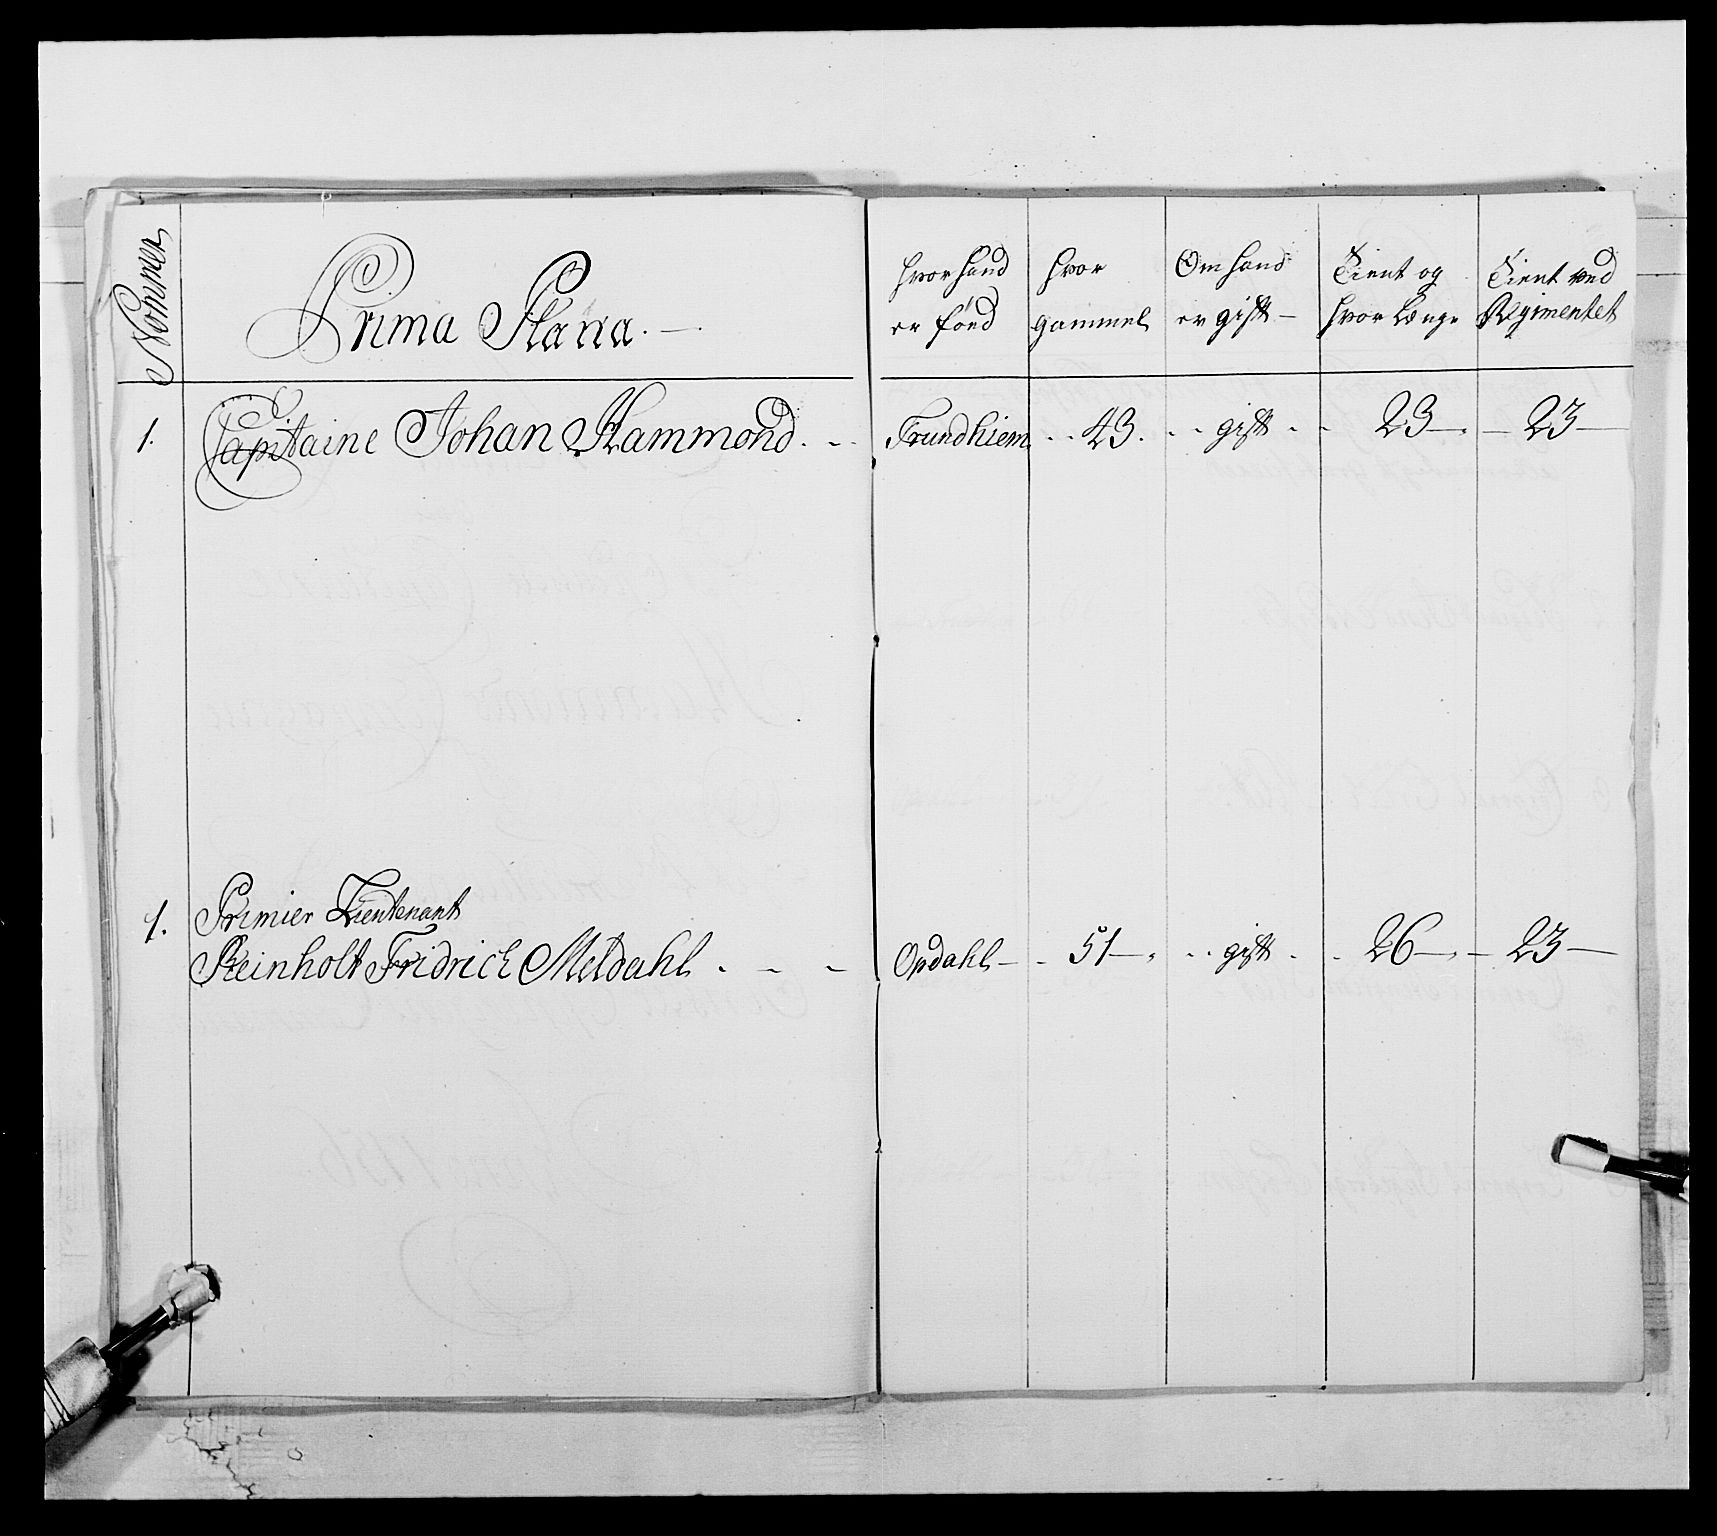 Nommer
Prima Plana.
hvor hand er föed
hvor gammel
Om hand er gift
Tient og hvor Længe
Tient ved Regimentet
1. Capitaine Johan Hammond. Trundhiem 43. gift 23 23
1. Primier Lieutenant
Reinholt Fridrich Meldahl Opdahl 51 gift 26 23